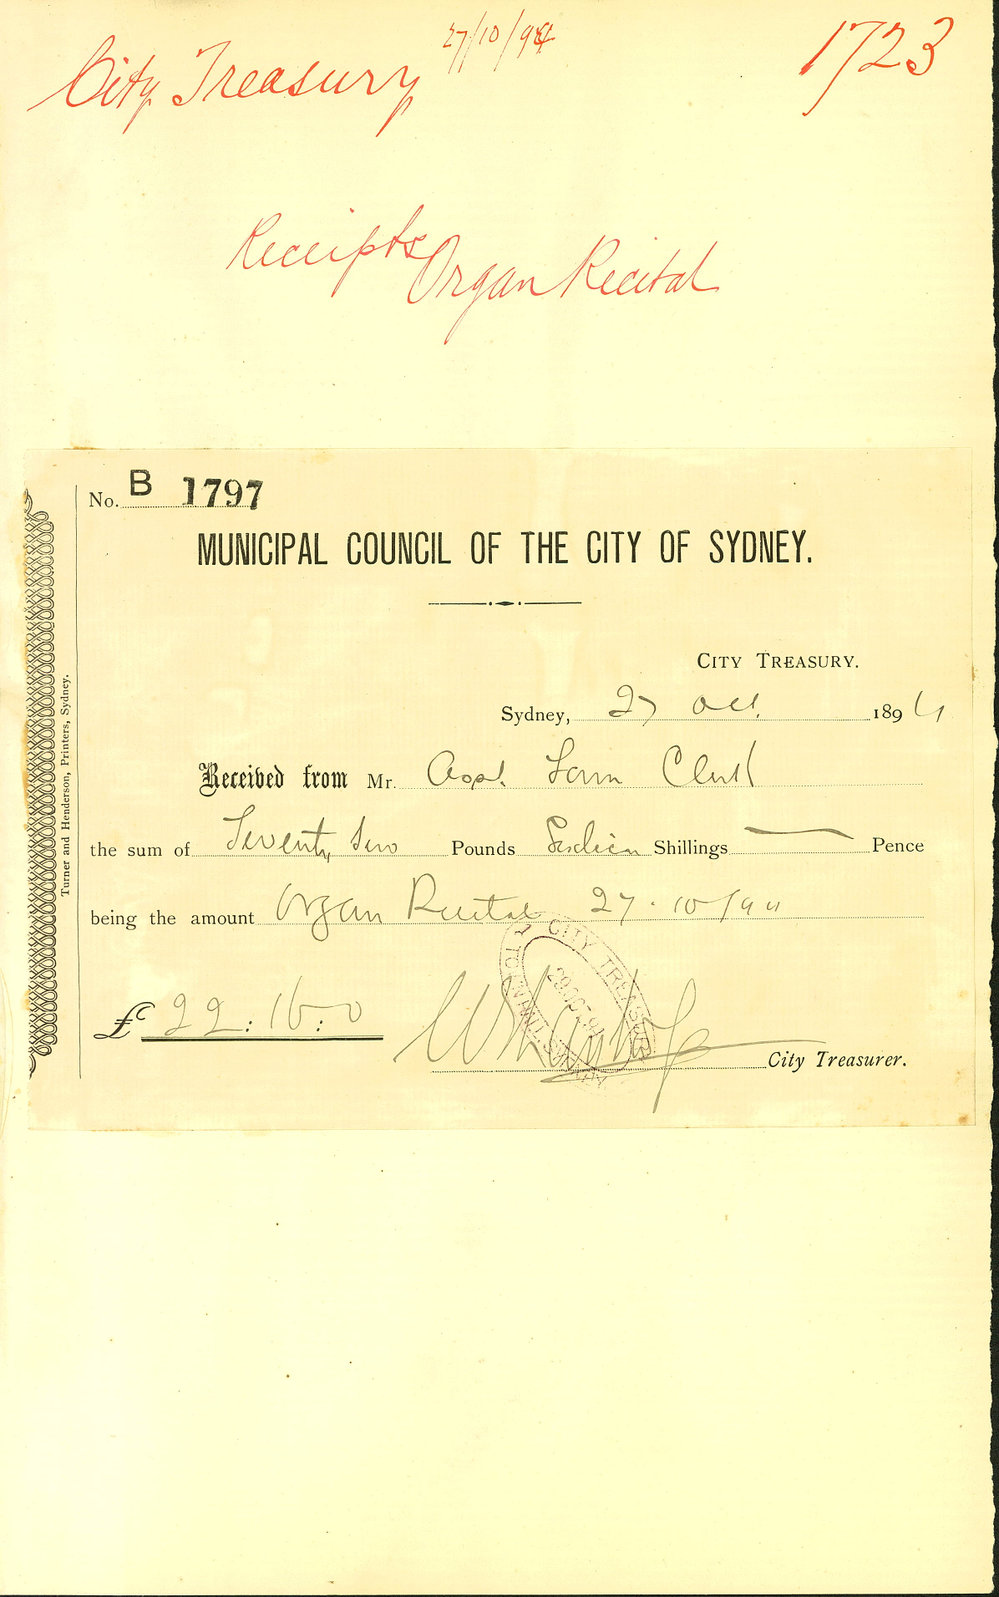 27/10/94
City Treasury
1723
Receipts Organ Recital
No. B 1797
MUNICIPAL COUNCIL OF THE CITY OF SYDNEY.
CITY TREASURY.
Sydney, 27 Oct. 1894
Received from Mr. Asst. Town Clerk
the sum of Seventy two Pounds Sixteen Shillings — Pence
being the amount Organ Recital 27.10/94
£ 22:16:0
City Treasurer.
CITY TREASURY
29 OCT. 94
TOWN HALL SYDNEY
Turner and Henderson, Printers, Sydney.